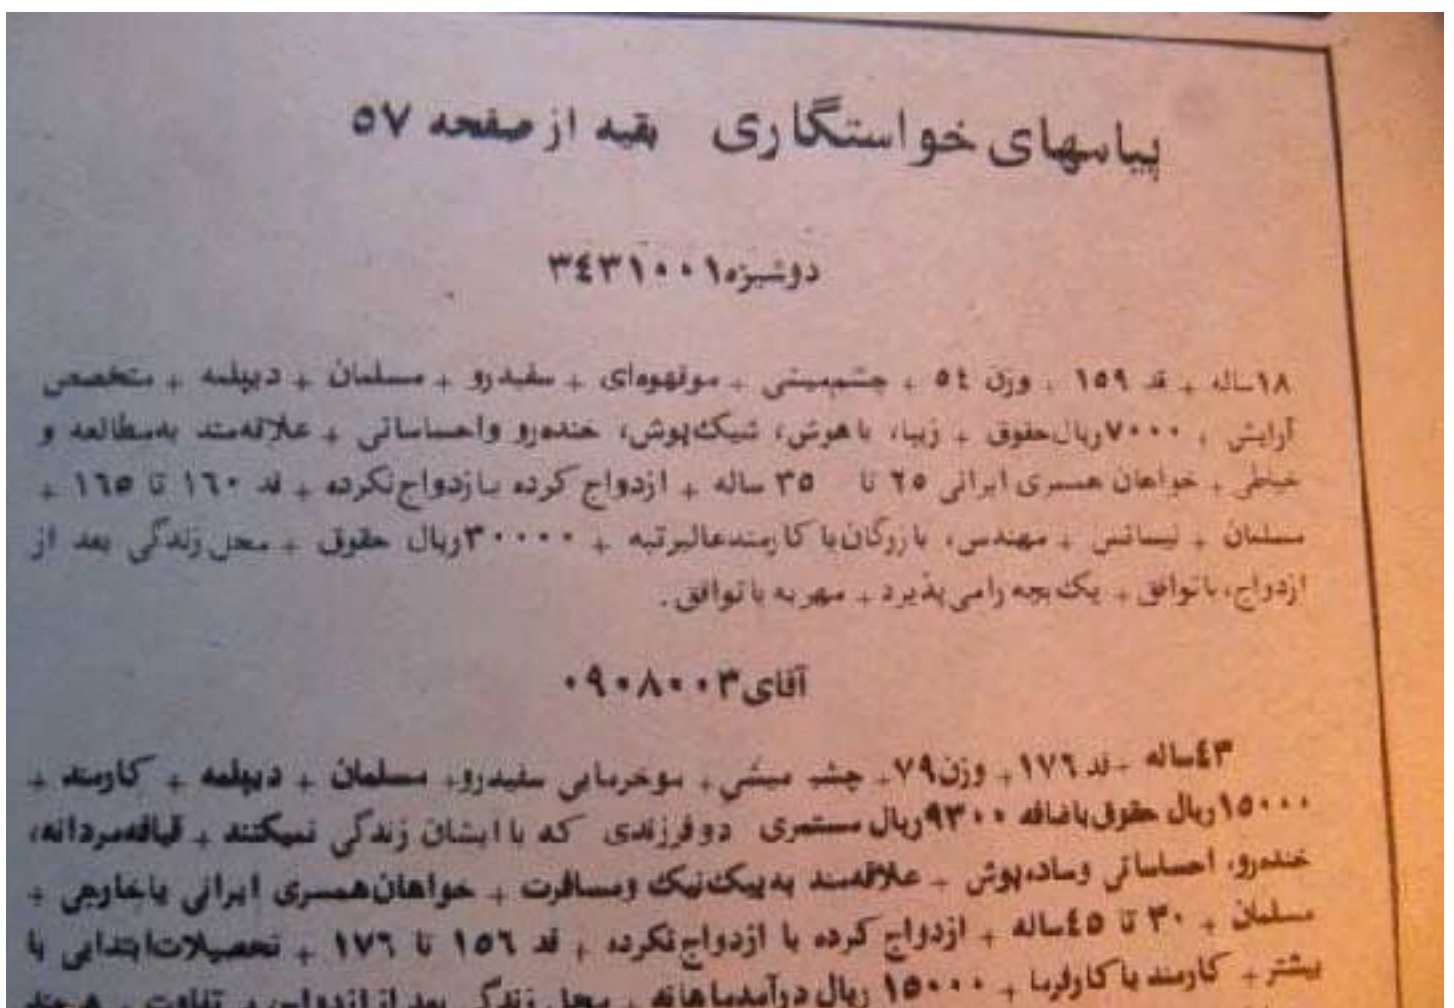 پیامهای خواستگاری بقیه از صفحه ۵۷
دوشیزه ۳۴۳۱۰۰۱
۱۸ساله + قد ۱۵۹ + وزن ۵٤ + چشم‌میشی + موقهوه‌ای + سفیدرو + مسلمان + دیپلمه + متخصص
آرایش + ۷۰۰۰ریال‌حقوق + زیبا، باهوش، شیک‌پوش، خنده‌رو واحساساتی + علاقه‌مند به‌مطالعه و
خیاطی + خواهان همسری ایرانی ۲۵ تا ۳۵ ساله + ازدواج کرده یاازدواج‌نکرده + قد ۱۶۰ تا ۱۶۵ +
مسلمان + لیسانس + مهندس، بازرگان‌یا کارمندعالیرتبه + ۳۰۰۰۰ریال حقوق + محل‌زندگی بعد از
ازدواج، باتوافق + یک‌بچه رامی‌پذیرد + مهریه باتوافق.
آقای ۰۹۰۸۰۰۳
٤۳ساله + قد ۱۷۶ + وزن ۷۹ + چشم میشی + موخرمایی سفیدرو + مسلمان + دیپلمه + کارمند +
۱۵۰۰۰ریال حقوق‌باضافه ۹۳۰۰ریال مستمری دوفرزندی که باایشان زندگی نمیکنند + قیافه‌مردانه،
خنده‌رو، احساساتی وساده‌پوش + علاقه‌مند به‌پیک‌نیک ومسافرت + خواهان‌همسری ایرانی یاخارجی +
مسلمان + ۳۰ تا ٤۵ساله + ازدواج کرده یا ازدواج‌نکرده + قد ۱۵۶ تا ۱۷۶ + تحصیلات‌ابتدایی یا
بیشتر + کارمند یاکارفرما + ۱۵۰۰۰ ریال درآمدماهانه + محل زندگی بعد ازازدواج، تفاوت